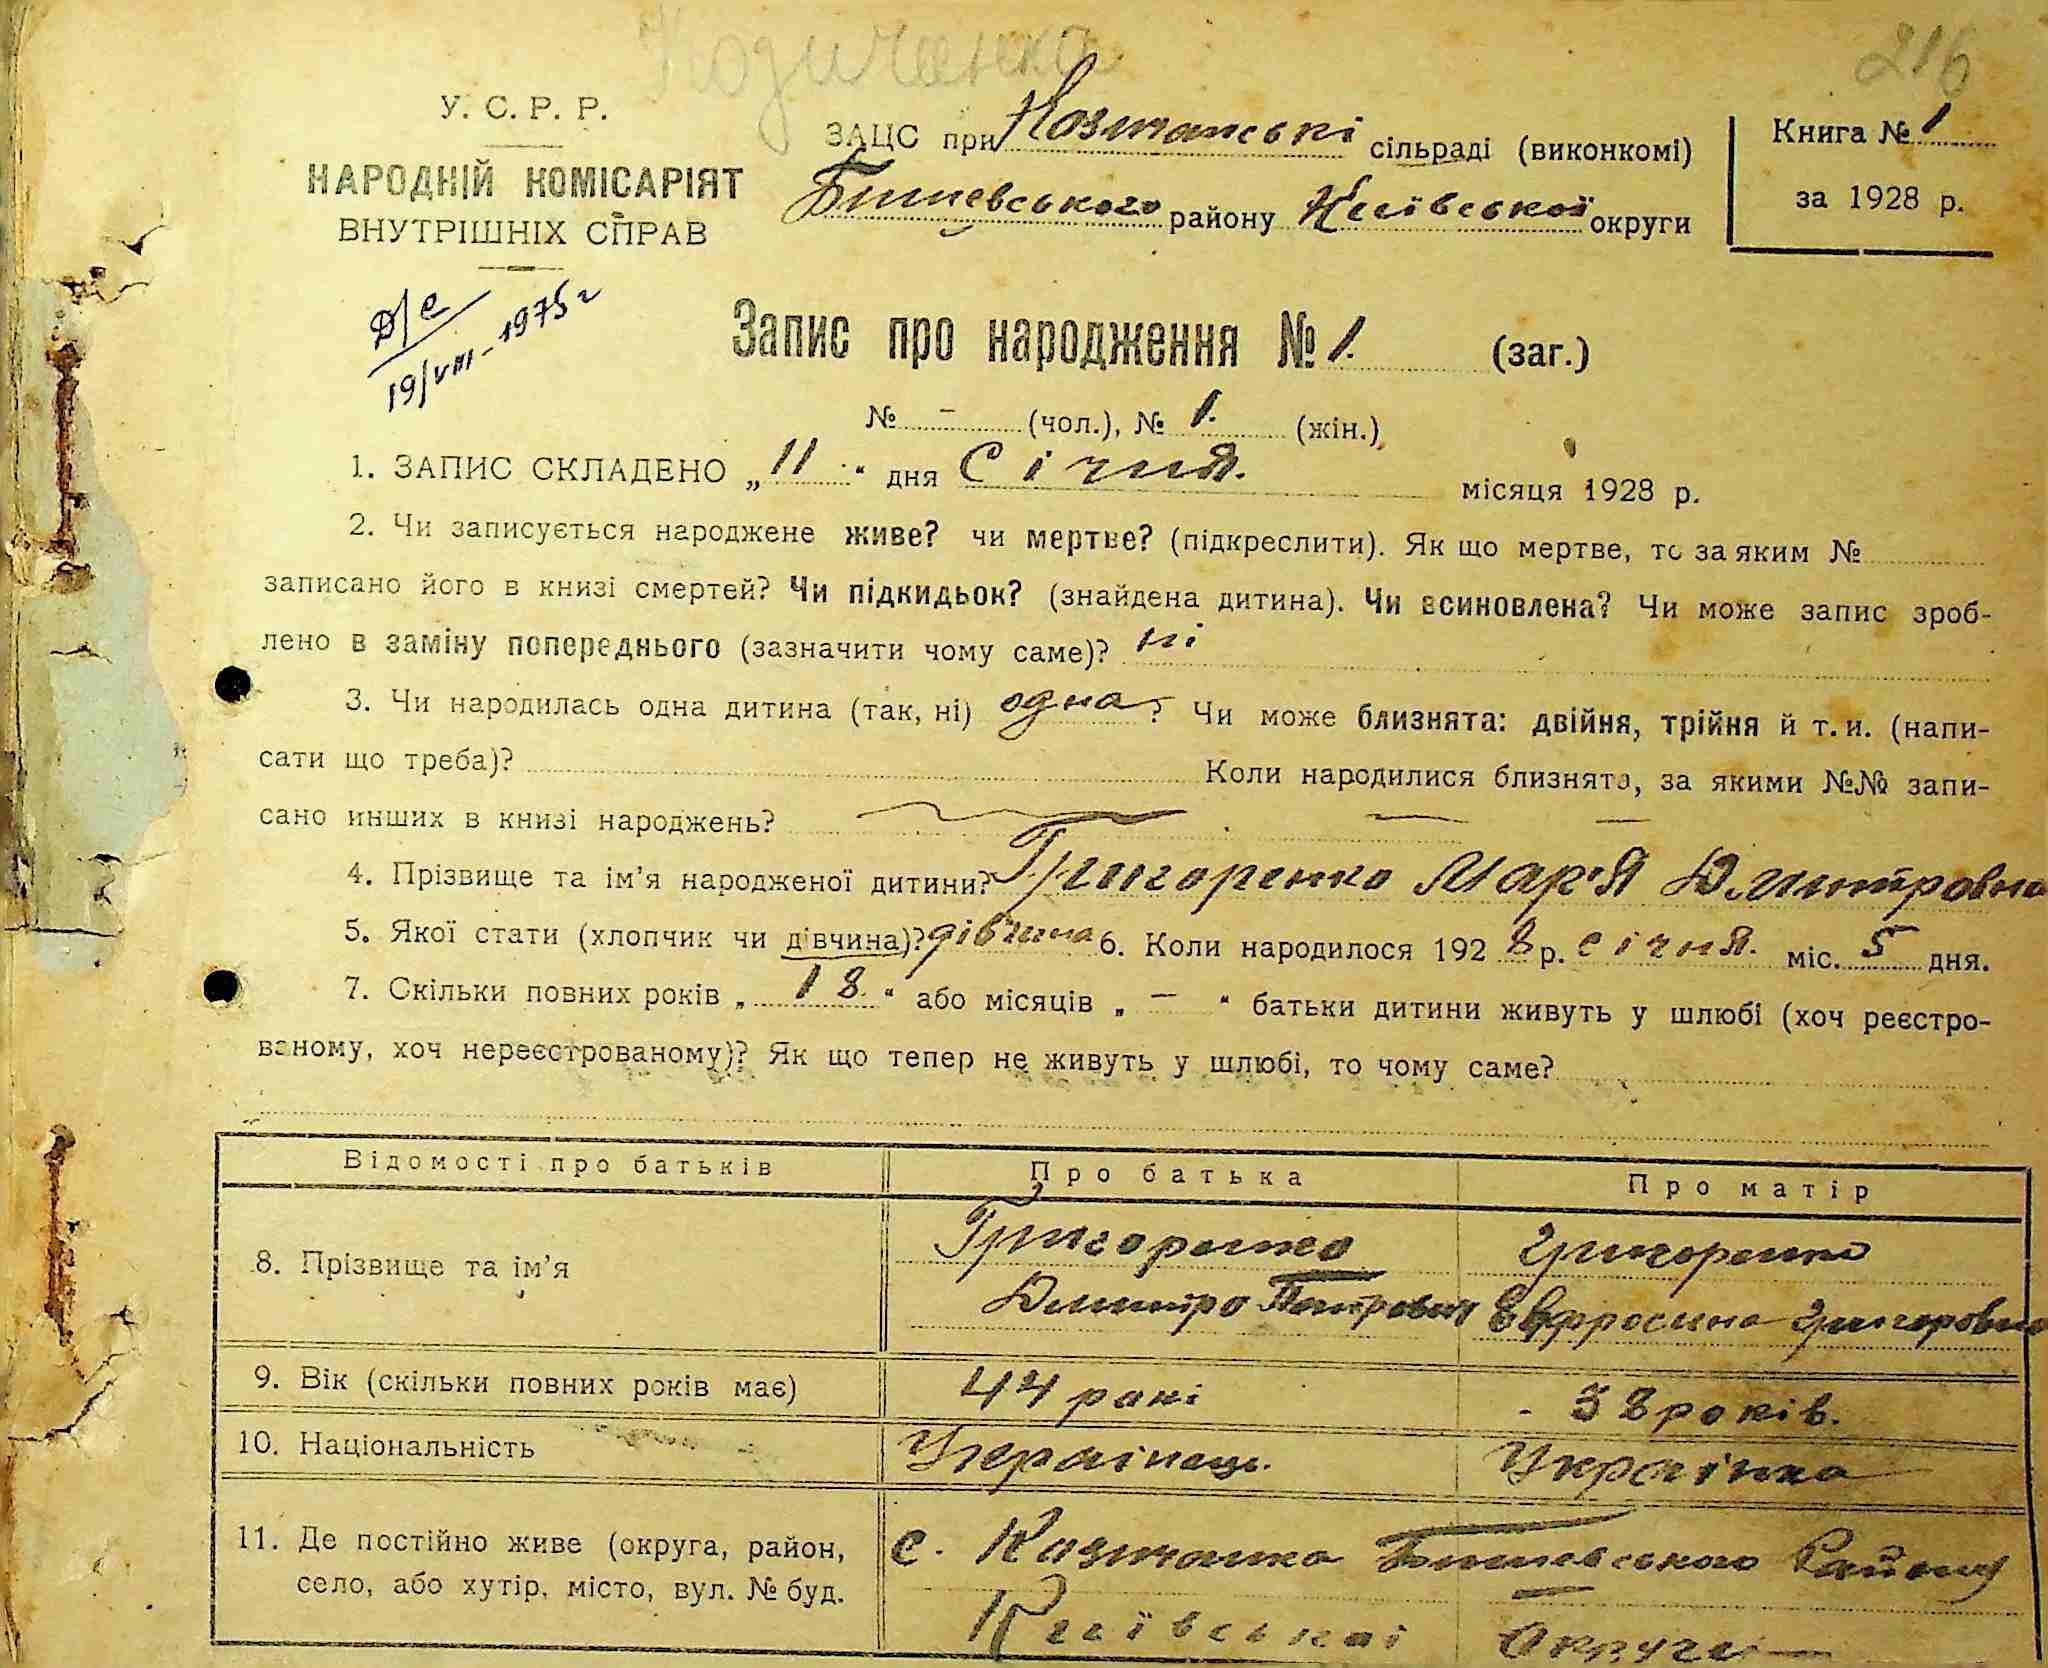 Козичанка
216
У. С. Р. Р.
НАРОДНІЙ КОМІСАРІЯТ
ВНУТРІШНІХ СПРАВ
ЗАЦС при Козичанські сільраді (виконкомі)
Бишевського району Київської округи
Книга № 1
за 1928 р.
Д/с
19/VIII-1975 г
Запис про народження № 1. (заг.)
№ - (чол.), № 1. (жін.)
1. ЗАПИС СКЛАДЕНО „11“ дня Січня. місяця 1928 р.
2. Чи записується народжене живе? чи мертве? (підкреслити). Як що мертве, то за яким №
записано його в книзі смертей? Чи підкидьок? (знайдена дитина). Чи всиновлена? Чи може запис зроб-
лено в заміну попереднього (зазначити чому саме)? ні
3. Чи народилась одна дитина (так, ні) одна? Чи може близнята: двійня, трійня й т. и. (напи-
сати що треба)? Коли народилися близнята, за якими №№ запи-
сано инших в книзі народжень?
4. Прізвище та ім’я народженої дитини? Григоренко Мар'я Дмитровна
5. Якої стати (хлопчик чи дівчина)? дівчина 6. Коли народилося 1928 р. січня. міс. 5 дня.
7. Скільки повних років „18.“ або місяців „—“ батьки дитини живуть у шлюбі (хоч реєстро-
ваному, хоч нереєстрованому)? Як що тепер не живуть у шлюбі, то чому саме?
Відомості про батьків Про батька Про матір
8. Прізвище та ім’я Григоренко Григоренко
Дмитро Петрович Евфросина Григоровна
9. Вік (скільки повних років має) 44 рокі 38 років.
10. Національність Украінець. Украінка
11. Де постійно живе (округа, район, с. Козичанка Бишевського Району
село, або хутір, місто, вул. № буд. Київськоі Округи